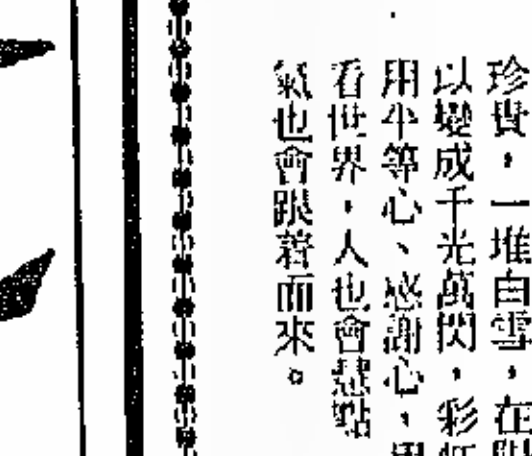 珍貴，一堆白雪，在
以變成千光萬閃，彩
用平等心、感謝心，
看世界，人也會慧黠
氣也會跟著而來。